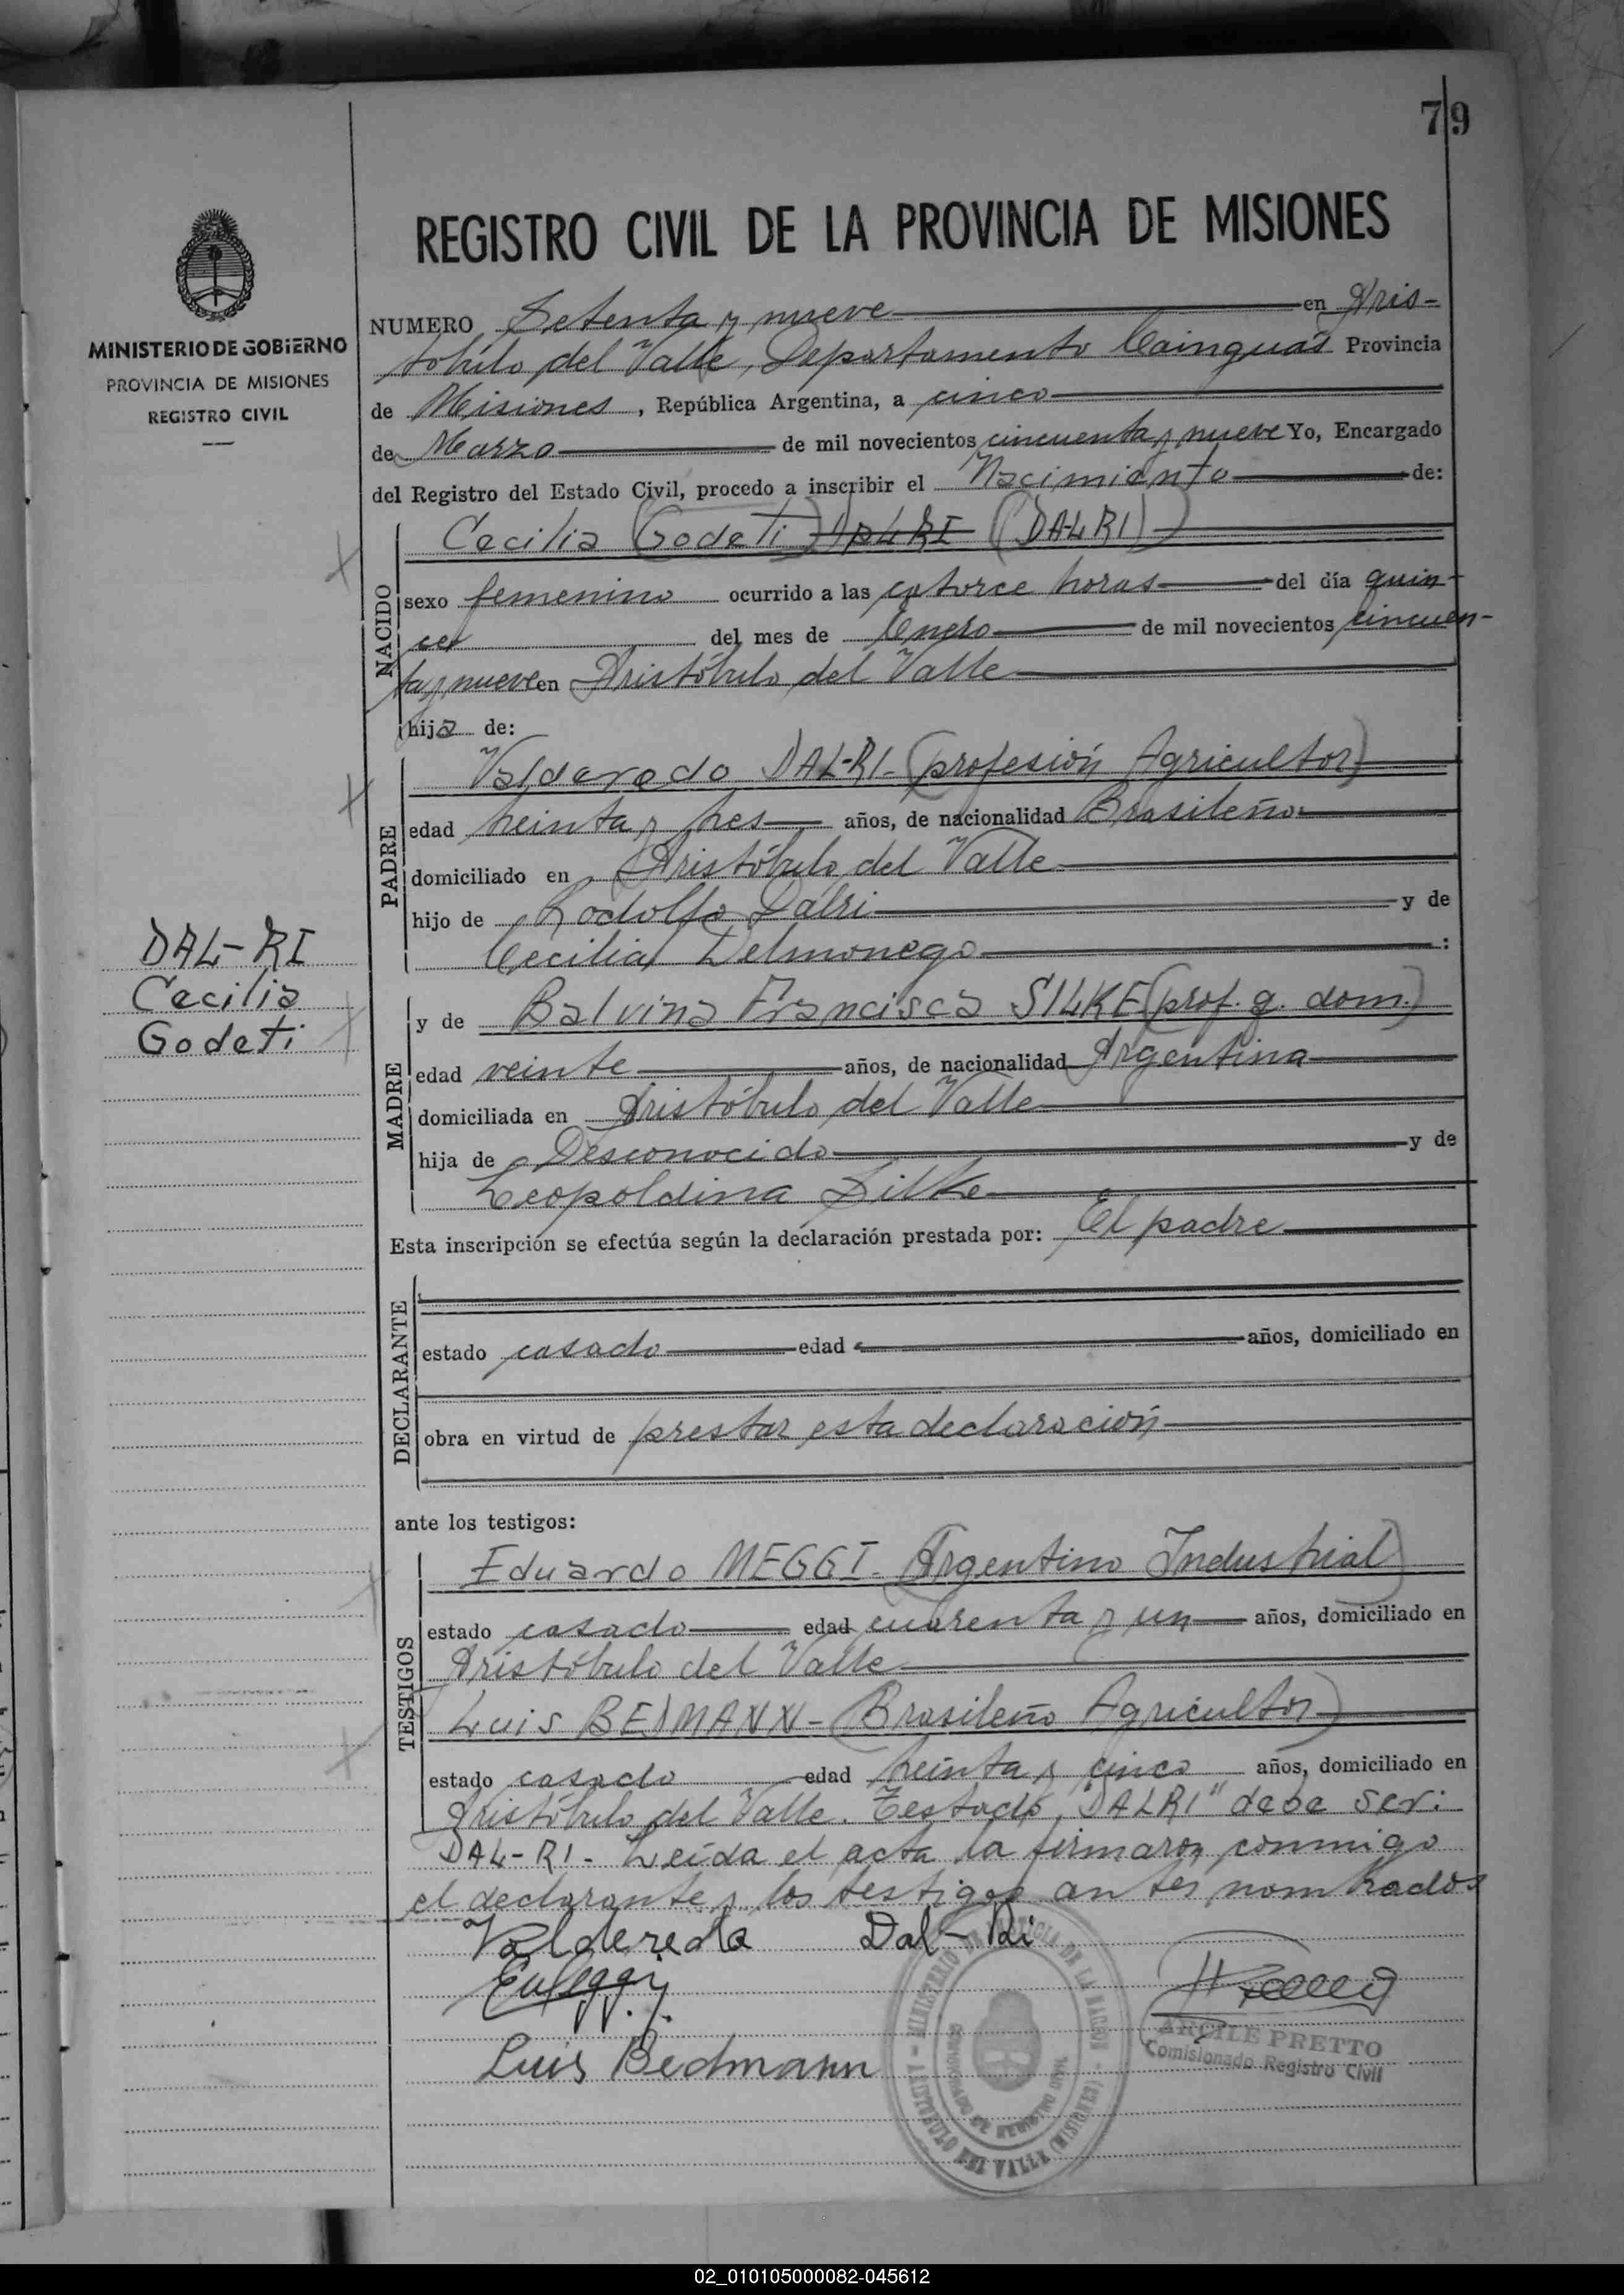 79
REGISTRO CIVIL DE LA PROVINCIA DE MISIONES
MINISTERIO DE GOBIERNO
PROVINCIA DE MISIONES
REGISTRO CIVIL
NUMERO Setenta y nueve en Aris-
tóbulo del Valle, Departamento Cainguás Provincia
de Misiones, República Argentina, a cinco
de Marzo de mil novecientos cincuenta y nueve Yo, Encargado
del Registro del Estado Civil, procedo a inscribir el Nacimiento de:
NACIDO
Cecilia (Godeti) DALRI (DAL-RI)
sexo femenino ocurrido a las catorce horas del día quin-
ce del mes de Enero de mil novecientos cincuen-
ta y nueve en Aristóbulo del Valle
hija de:
PADRE
Valderedo DAL-RI- (profesión Agricultor)
edad treinta y tres años, de nacionalidad Brasileño
domiciliado en Aristóbulo del Valle
hijo de Rodolfo Dalri y de
Cecilia Delmonego :
DAL-RI
Cecilia
Godeti
MADRE
y de Balvina Francisca SILKE (prof. q. dom.)
edad veinte años, de nacionalidad Argentina
domiciliada en Aristóbulo del Valle
hija de Desconocido y de
Leopoldina Silke
Esta inscripción se efectúa según la declaración prestada por: El padre
DECLARANTE
estado casado edad años, domiciliado en
obra en virtud de prestar esta declaración
ante los testigos:
TESTIGOS
Eduardo MEGGI- (Argentino Industrial)
estado casado edad cuarenta y un años, domiciliado en
Aristóbulo del Valle
Luis BEDMANN- (Brasileño Agricultor)
estado casado edad treinta y cinco años, domiciliado en
Aristóbulo del Valle. Testado, "DALRI" debe ser:
DAL-RI- Leída el acta la firmaron conmigo
el declarante y los testigos antes nombrados
Valderedo Dal-Ri
Luis Bedmann
ARCILE PRETTO
Comisionado Registro Civil
02_010105000082-045612